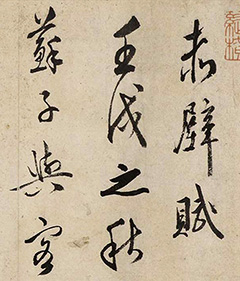 赤壁賦
壬戌之秋
蘇子與客